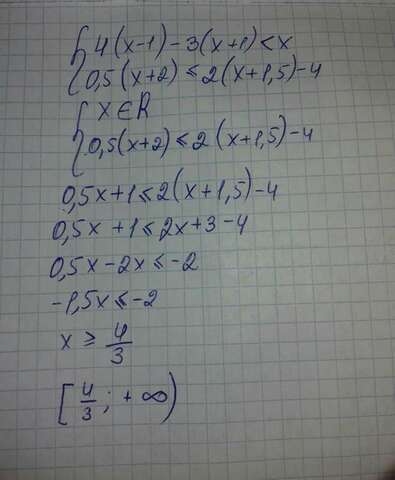 { 4(x-1)-3(x+1)<x
0,5(x+2)≤2(x+1,5)-4
{ x∈R
0,5(x+2)≤2(x+1,5)-4
0,5x+1≤2(x+1,5)-4
0,5x+1≤2x+3-4
0,5x-2x≤-2
-1,5x≤-2
x≥4/3
[4/3;+∞)